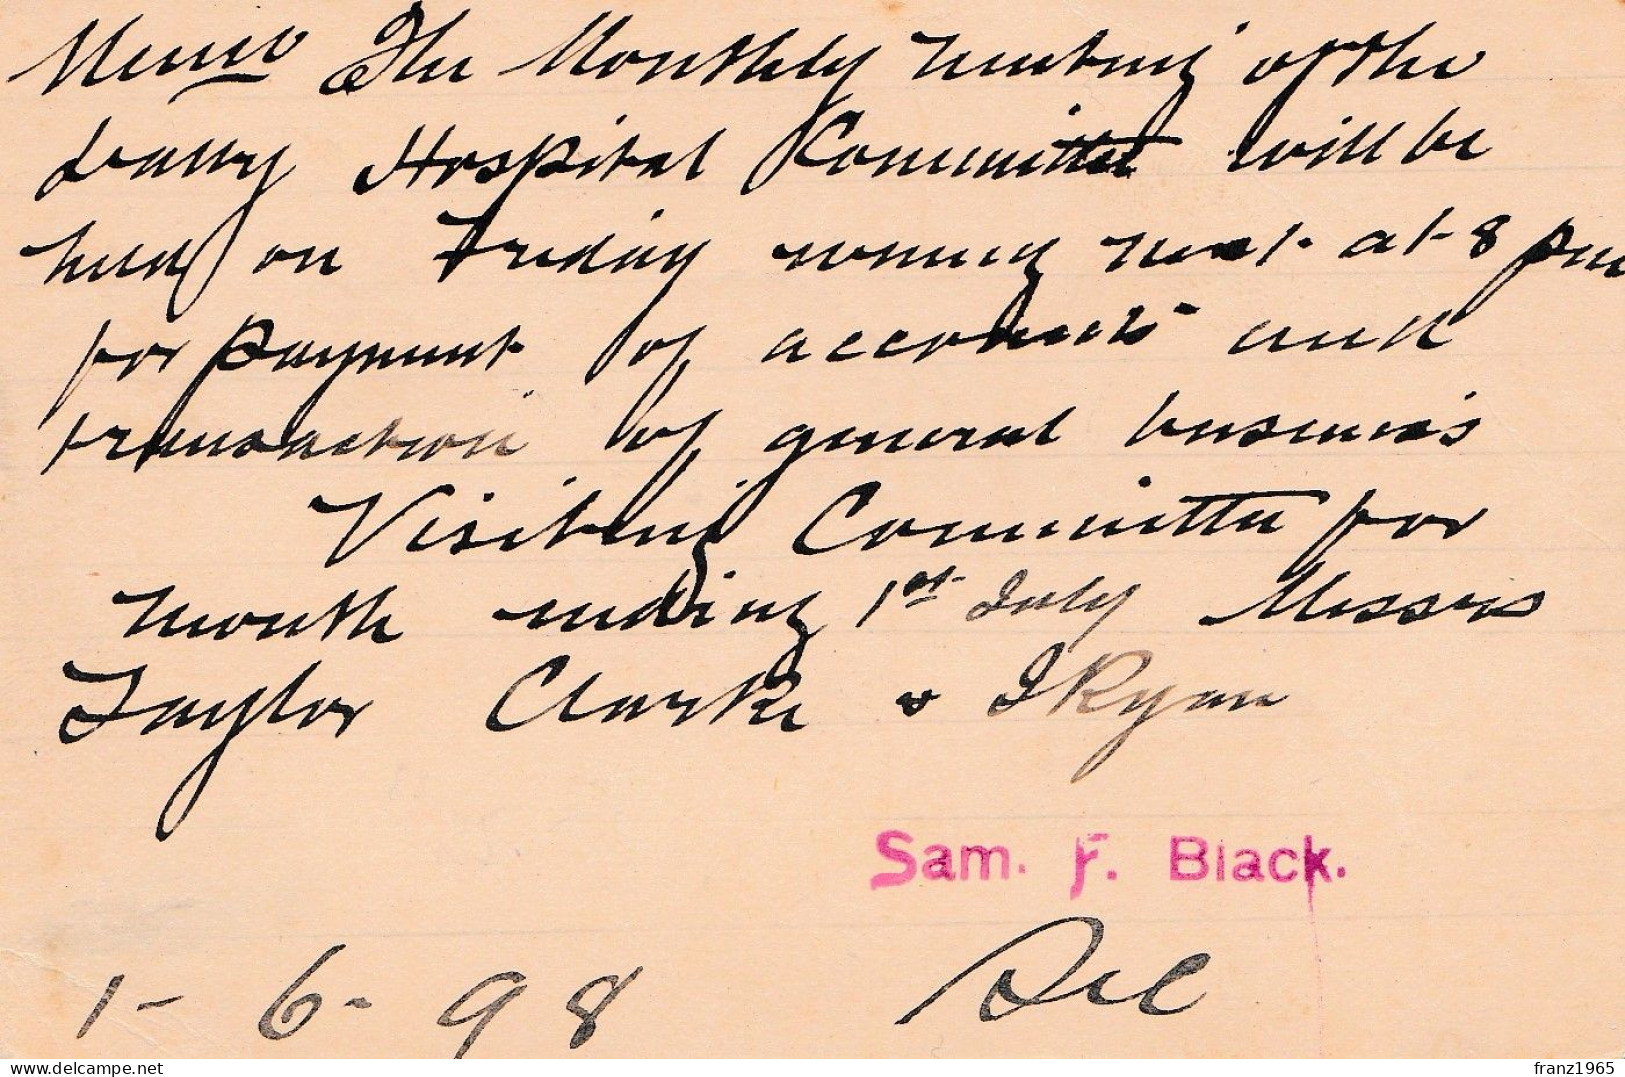 Memo The Monthly meeting of the
Hospital Committee will be
held on Friday evening next at 8 pm
for payment of accounts and
transaction of general business
Visiting Committee for
month ending 1st July Messrs
Taylor Clarke & J Ryan
Sam. F. Black.
Sec
1-6-98
delcampe.net
franz1965